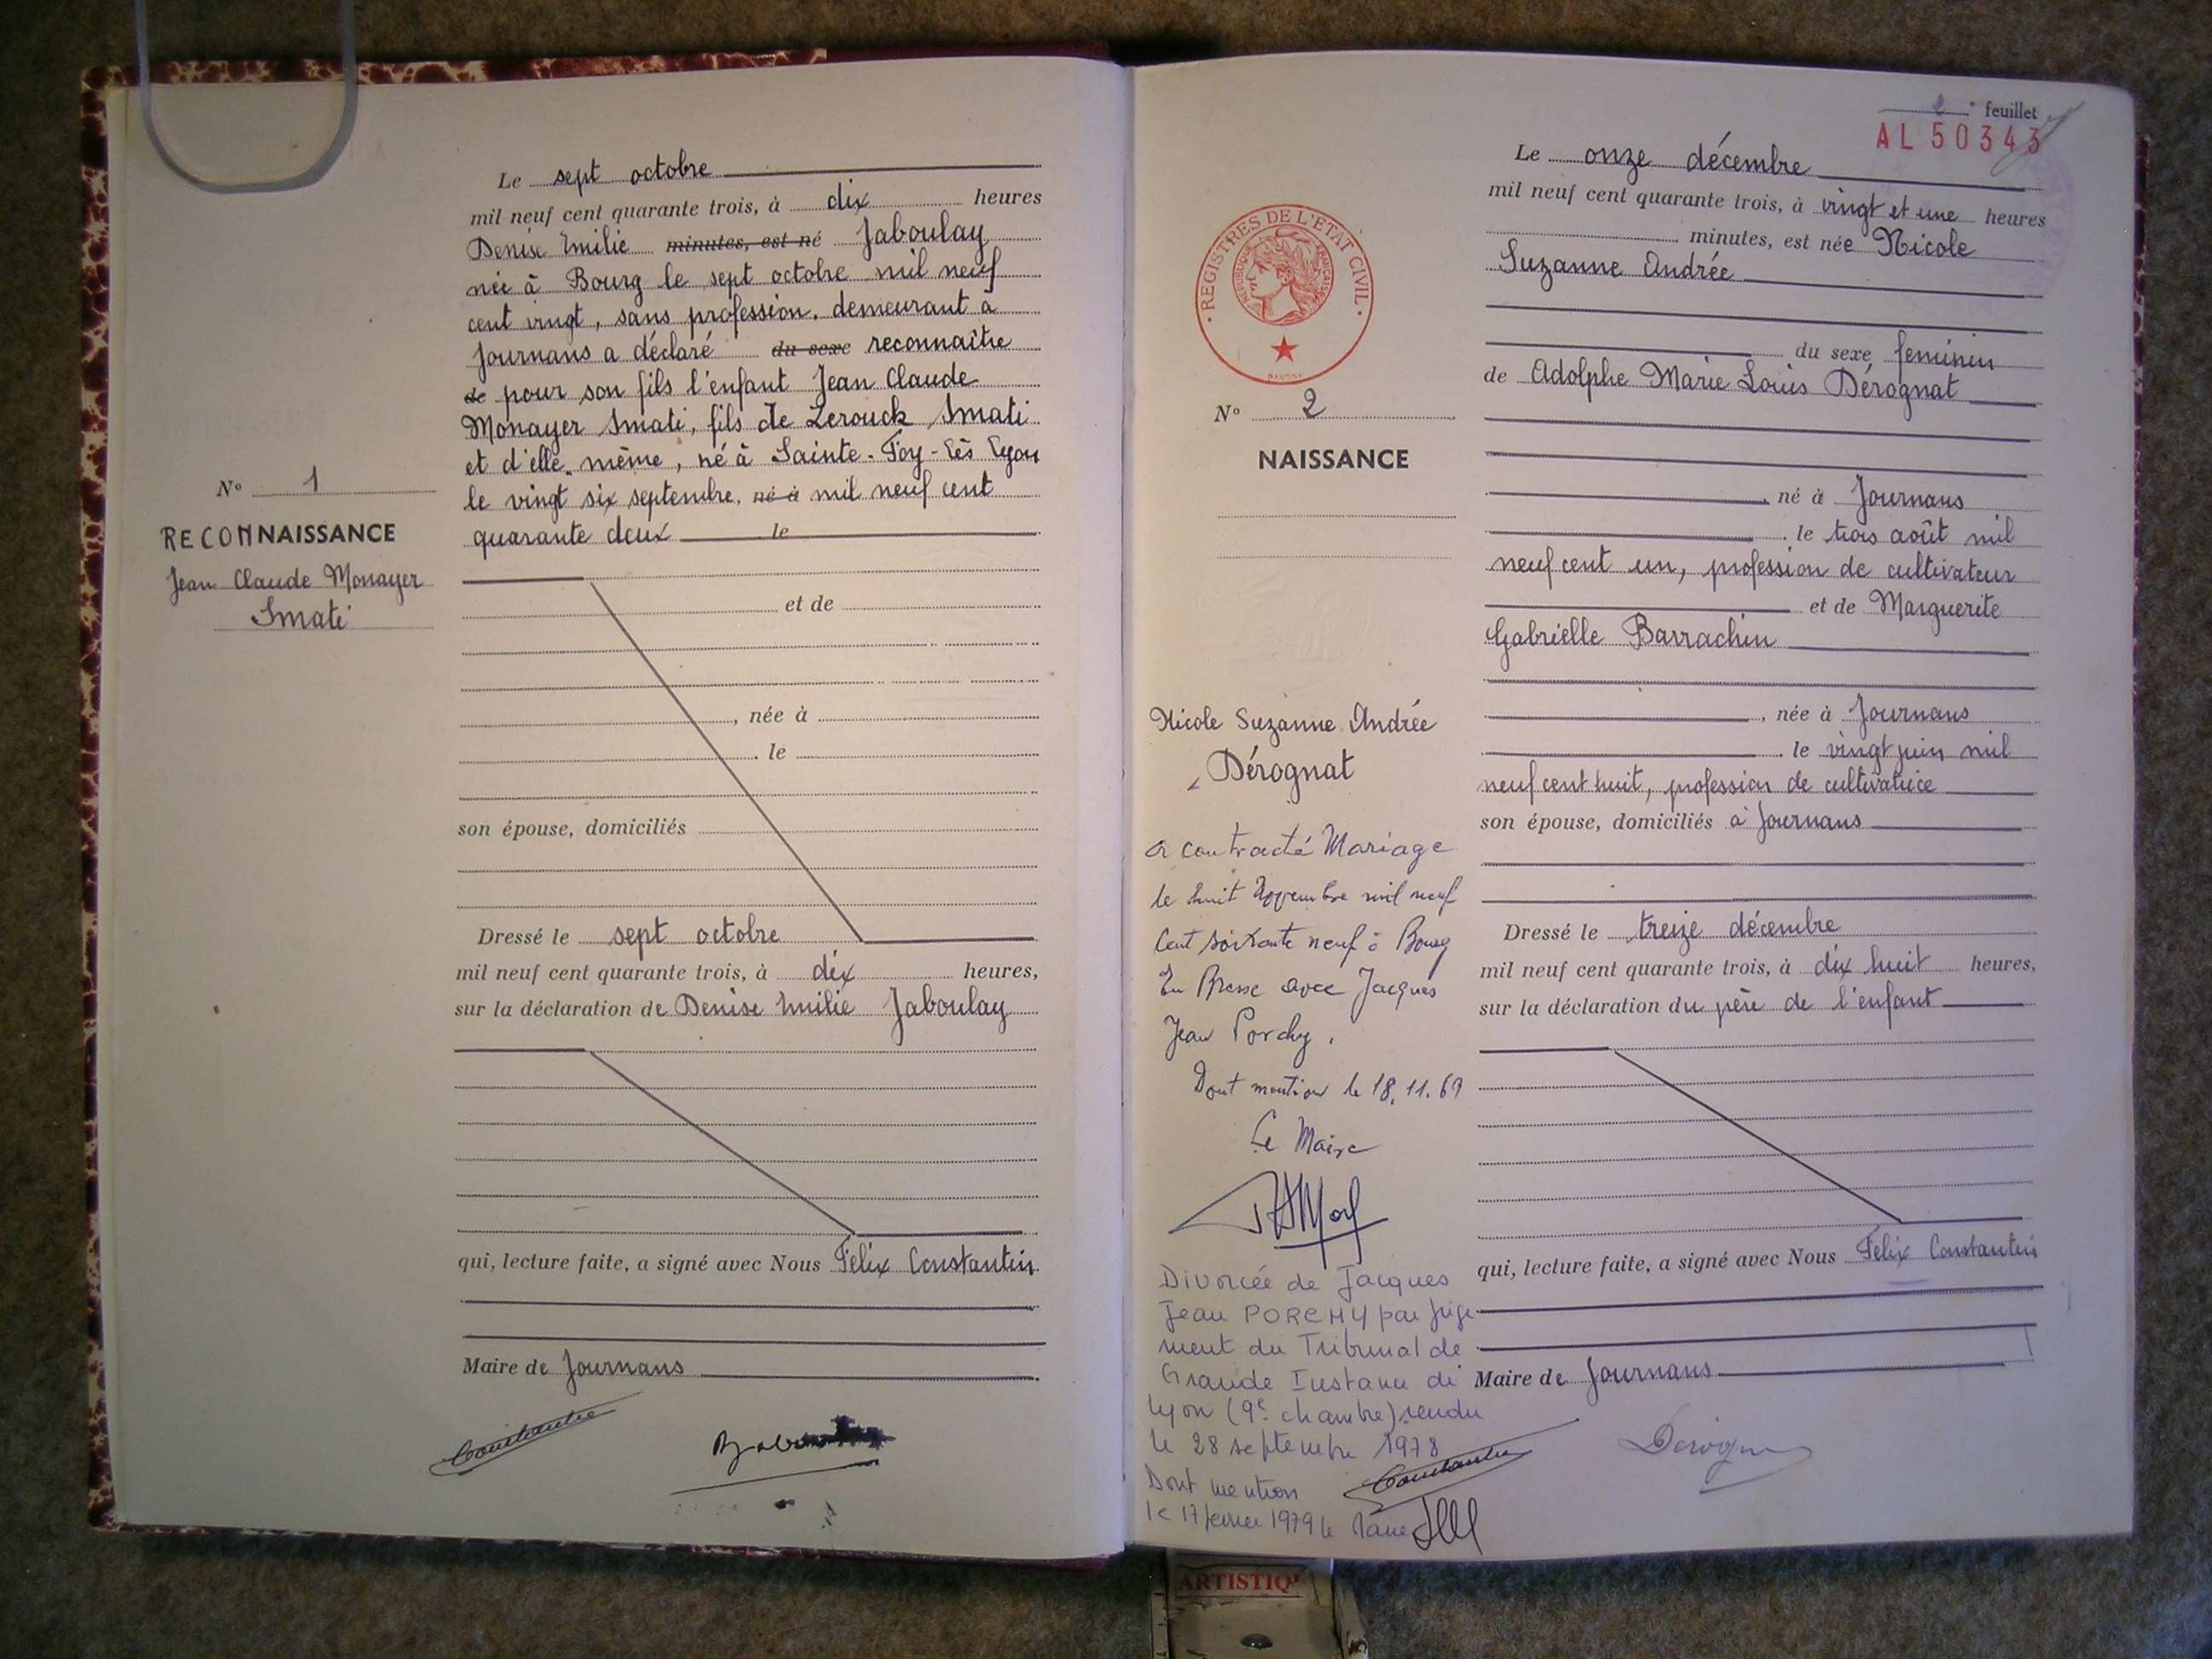 Le sept octobre
mil neuf cent quarante trois, à dix heures
Denise Emilie minutes, est né Jaboulay
née à Bourg le sept octobre mil neuf
cent vingt, sans profession, demeurant à
Journans a déclaré du sexe reconnaître
de pour son fils l'enfant Jean Claude
Monayer Smati, fils de Zerouck Smati
et d'elle-même, né à Sainte-Foy-lès Lyon
le vingt six septembre, né à mil neuf cent
quarante deux le
N° 1
RECONNAISSANCE
Jean Claude Monayer
Smati
et de
, née à
, le
son épouse, domiciliés
Dressé le sept octobre
mil neuf cent quarante trois, à dix heures,
sur la déclaration de Denise Emilie Jaboulay
qui, lecture faite, a signé avec Nous Félix Constantin
Maire de Journans
Constantin
feuillet
AL 50343
REGISTRES DE L'ETAT CIVIL
REPUBLIQUE FRANÇAISE
N° 2
NAISSANCE
Nicole Suzanne Andrée
Dérognat
a contracté Mariage
le huit Novembre mil neuf
Cent soixante neuf à Bourg
En Bresse avec Jacques
Jean Porchy.
Dont mention le 18.11.69
Le Maire
Divorcée de Jacques
Jean PORCHY par juge-
ment du Tribunal de
Grande Instance de
Lyon (9e chambre) rendu
le 28 septembre 1978
Dont mention
le 17 février 1979 le Maire
Le onze décembre
mil neuf cent quarante trois, à vingt et une heures
minutes, est née Nicole
Suzanne Andrée
du sexe féminin
de Adolphe Marie Louis Dérognat
, né à Journans
, le trois août mil
neuf cent un, profession de cultivateur
et de Marguerite
Gabrielle Barrachin
, née à Journans
, le vingt juin mil
neuf cent huit, profession de cultivatrice
son épouse, domiciliés à Journans
Dressé le treize décembre
mil neuf cent quarante trois, à dix huit heures,
sur la déclaration du père de l'enfant
qui, lecture faite, a signé avec Nous Félix Constantin
Maire de Journans
Constantin
ARTISTIQ